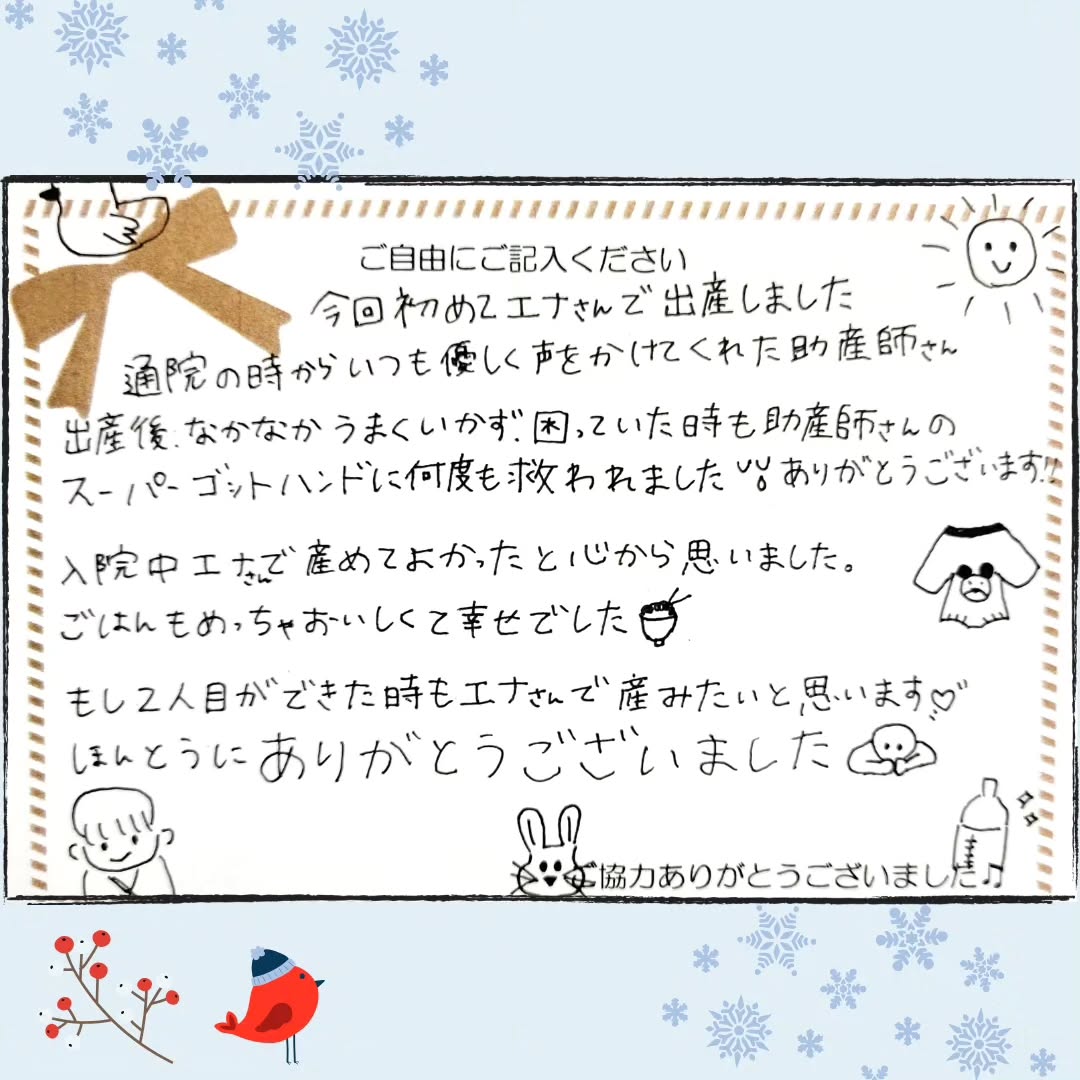 ご自由にご記入ください
今回初めてエナさんで出産しました
通院の時からいつも優しく声をかけてくれた助産師さん
出産後、なかなかうまくいかず、困っていた時も助産師さんの
スーパーゴットハンドに何度も救われました ありがとうございます!!
入院中エナさんで産めてよかったと心から思いました。
ごはんもめっちゃおいしくて幸せでした
もし2人目ができた時もエナさんで産みたいと思います♡
ほんとうにありがとうございました
ご協力ありがとうございました♫